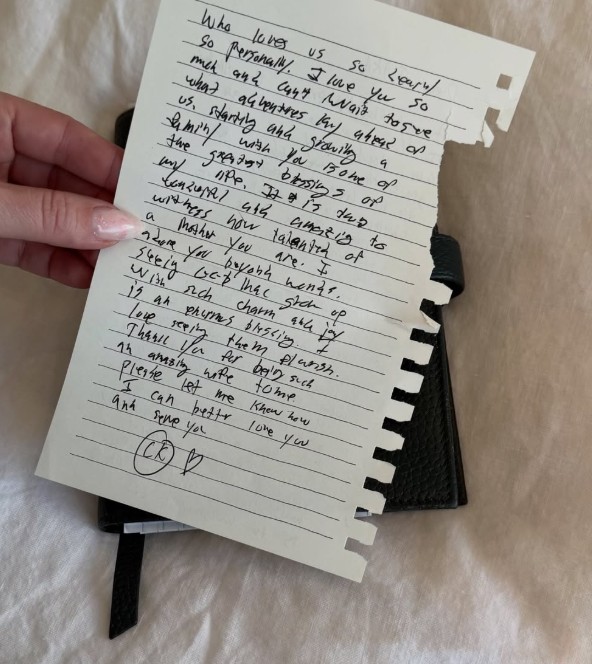 Who loves us so dearly
so personally. I love you so
much and can't wait to see
what adventures lay ahead of
us. starting and growing a
family with you is one of
the greatest blessings of
my life. It is
wonderful and amazing to
witness how talented of
a mother you are. I
adore you beyond words.
seeing grow up
with such charm and joy
is an enormous blessing. I
love seeing them flourish.
Thank you for being such
an amazing wife to me
please let me know how
I can better love you
and serve you
CK